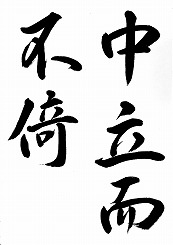 中立而
不倚